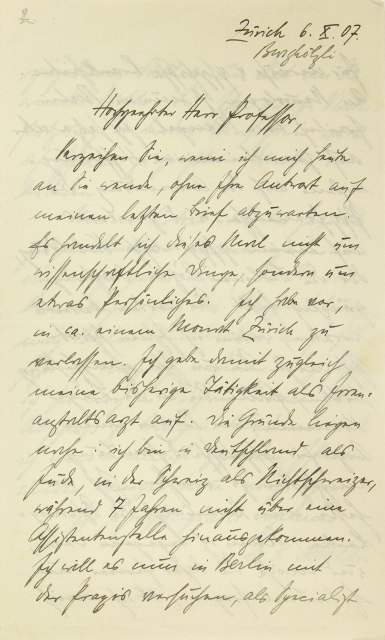 2
Zürich 6. X. 07.
Burghölzli
Hochgeehrter Herr Professor,
Verzeihen Sie, wenn ich mich heute
an Sie wende, ohne Ihre Antwort auf
meinen letzten Brief abzuwarten.
Es handelt sich dieses Mal nicht um
wissenschaftliche Dinge, sondern um
etwas Persönliches. Ich habe vor,
in ca. einem Monat Zürich zu
verlassen. Ich gebe damit zugleich
meine bisherige Tätigkeit als Irren-
anstaltsarzt auf. Die Gründe liegen
nahe: ich bin in Deutschland als
Jude, in der Schweiz als Nichtschweizer,
während 7 Jahren nicht über eine
Assistentenstelle hinausgekommen.
Ich will es nun in Berlin mit
der Praxis versuchen, als Specialist